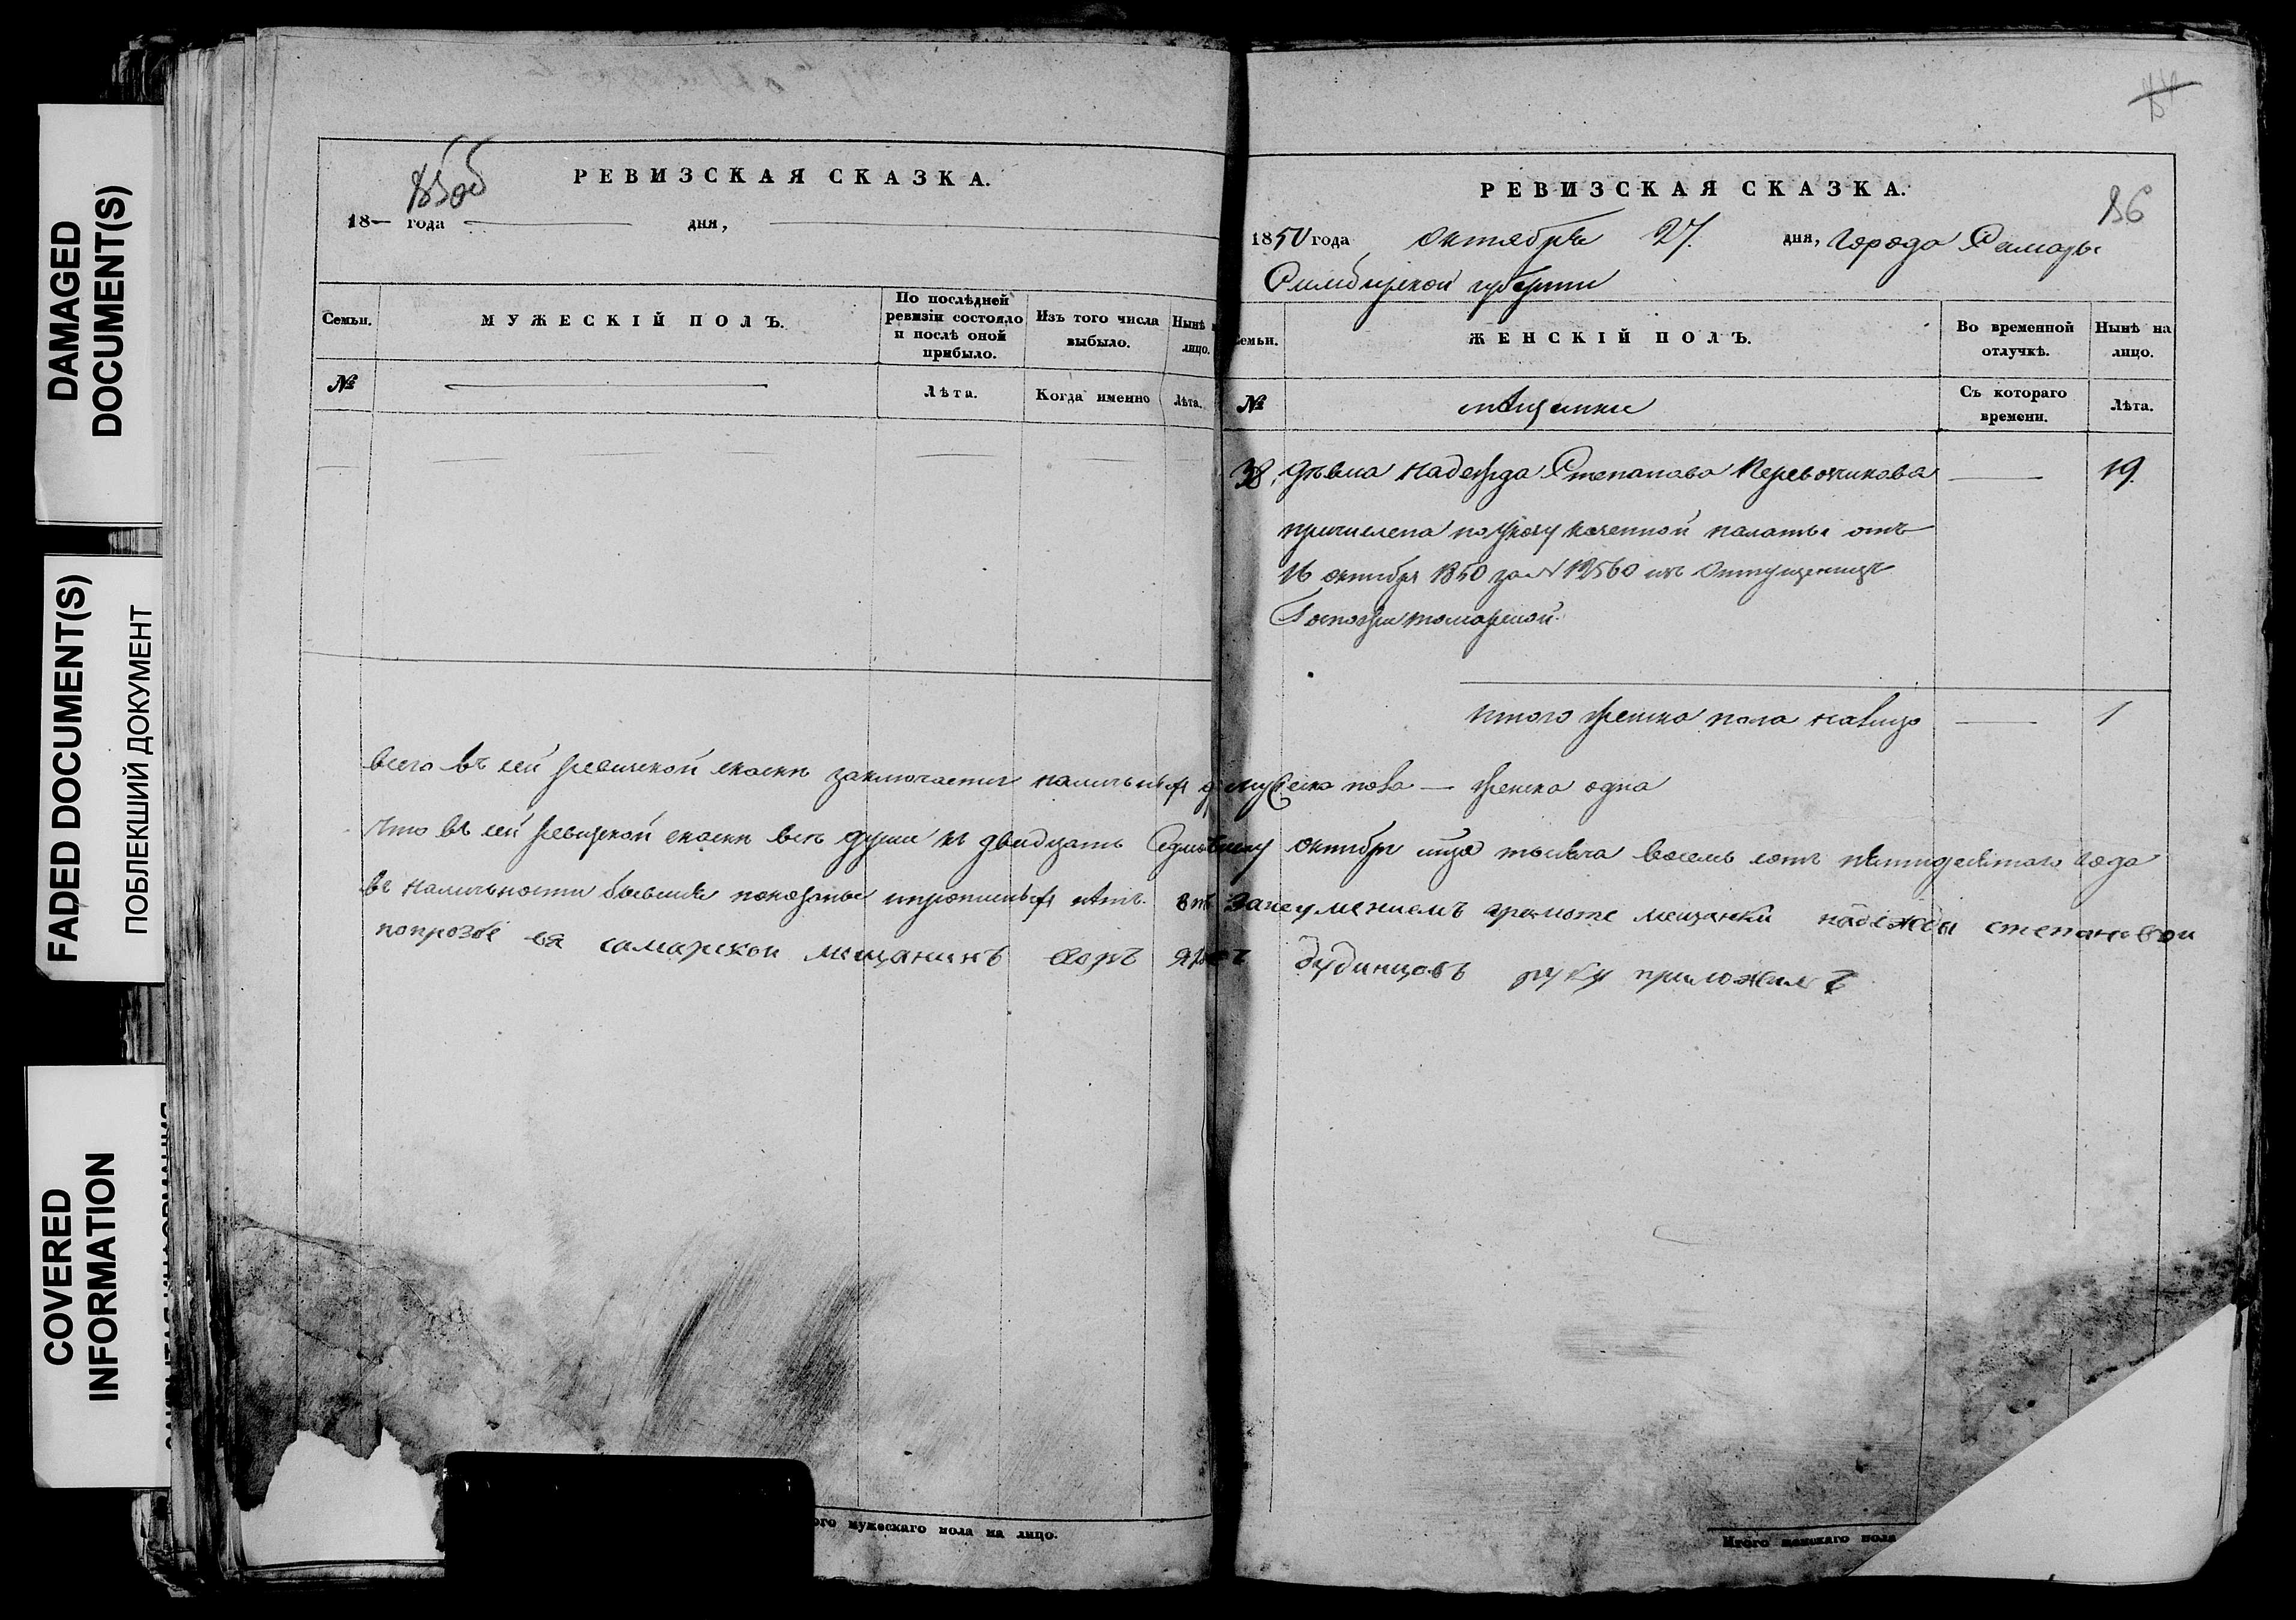 DAMAGED
DOCUMENT(S)
FADED DOCUMENT(S)
ПОБЛЕКШИЙ ДОКУМЕНТ
COVERED
INFORMATION
РЕВИЗСКАЯ СКАЗКА.
18— года дня,
Семьи.
МУЖЕСКІЙ ПОЛЪ.
По послѣдней ревизіи состояло и послѣ оной прибыло.
Изъ того числа выбыло.
Нынѣ лицо.
№
Лѣта.
Когда именно
Лѣта.
РЕВИЗСКАЯ СКАЗКА.
86
1850 года октября 27. дня, города Самары
Симбирской губернии
Семьи.
ЖЕНСКІЙ ПОЛЪ.
Во временной отлучкѣ.
Нынѣ на лицо.
№
мѣщанки
Съ котораго времени.
Лѣта.
38. дѣвка Надежда Степанова Перевощикова — 19.
причислена по указу казенной палаты отъ
16 октября 1850 за N 12560 изъ отпущенницъ
Госпожи
Итого женска пола налицо — 1
всего въ сей ревизской сказке заключается наличныхъ мужеска пола — женска одна
что въ сей ревизской сказке все души къ двадцать седьмому октября мца тысяча восемь сотъ пятидесятаго года
въ наличности бывшия показаны и прописныхъ нѣтъ. Занеумениемъ грамоте мещанки надежды степановой
попрозбе ея самарской мещанинъ дудинцовъ руку приложилъ
ого мужескаго пола на лицо.
Итого женскаго пола